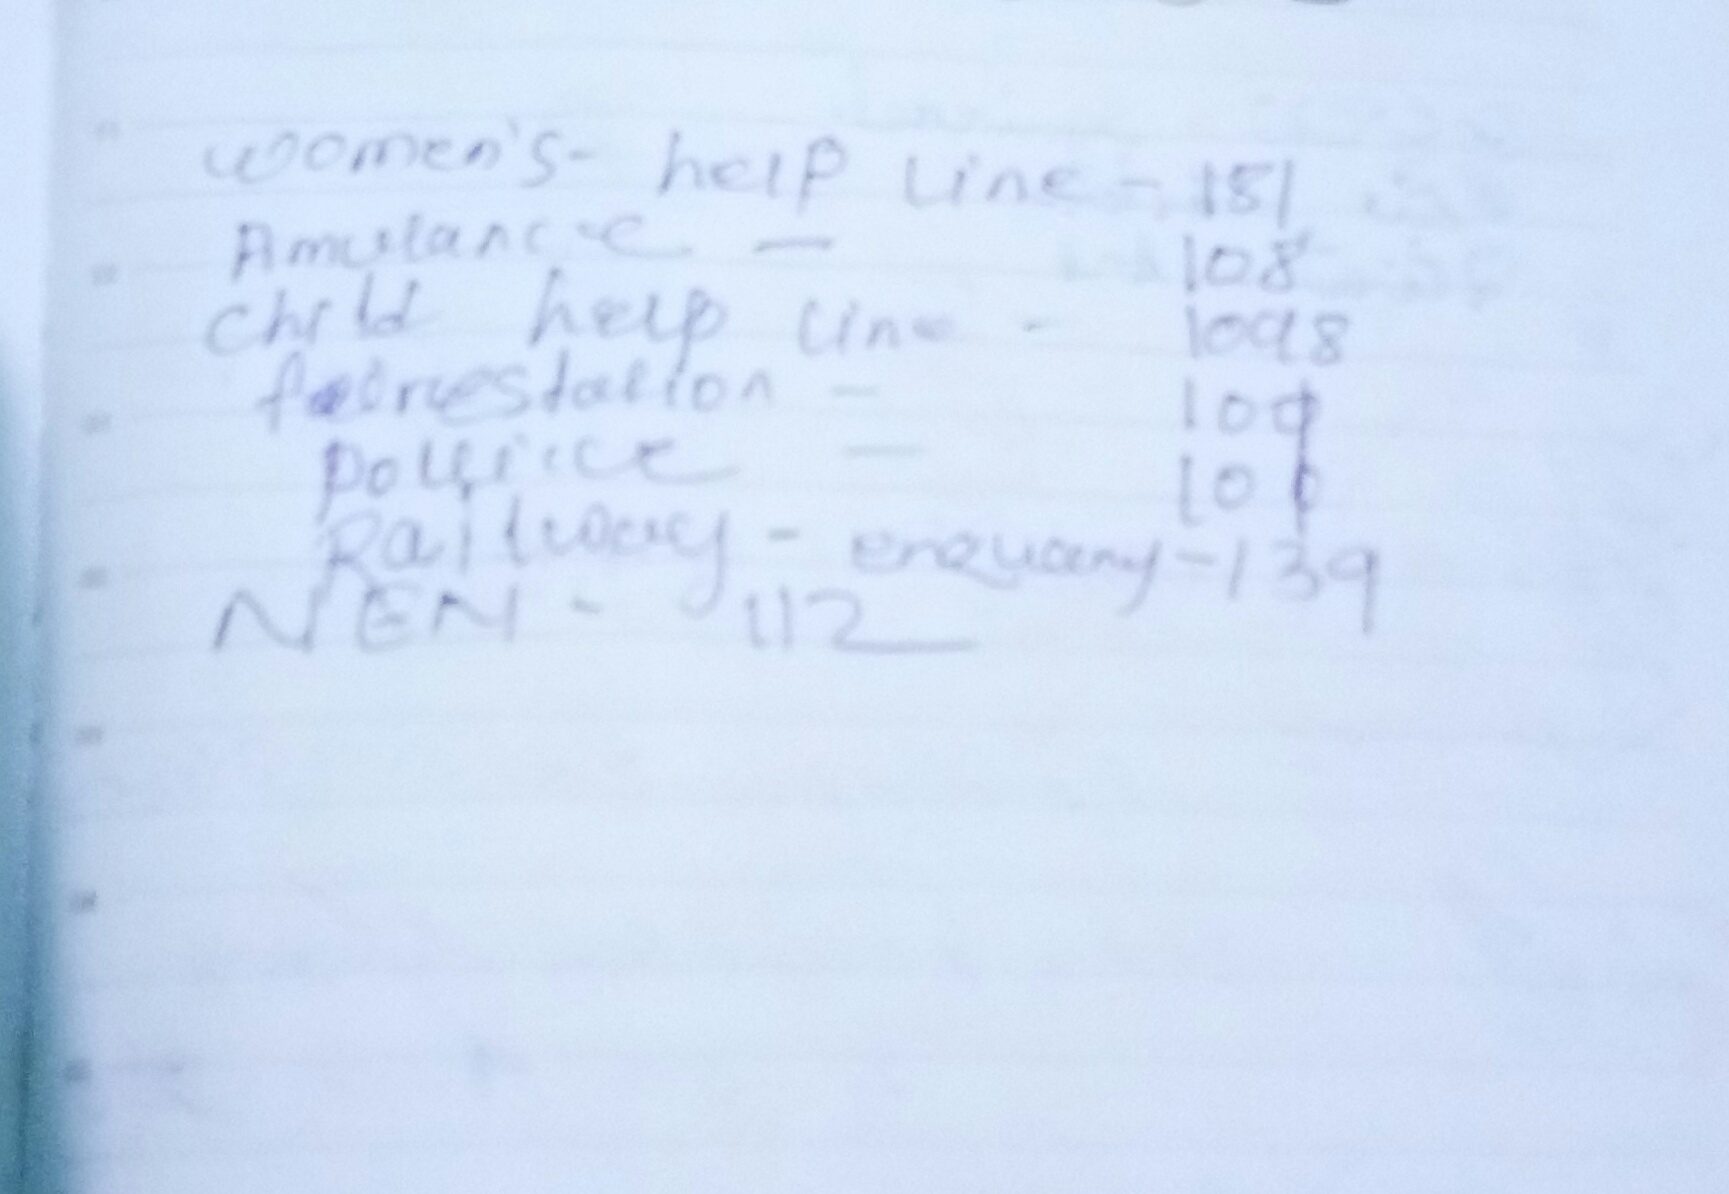 women's- help Line - 181
Amulance — 108
Child help Line - 1098
— 10
Pollice — 10
Railway - enquary - 139
NEN - 112